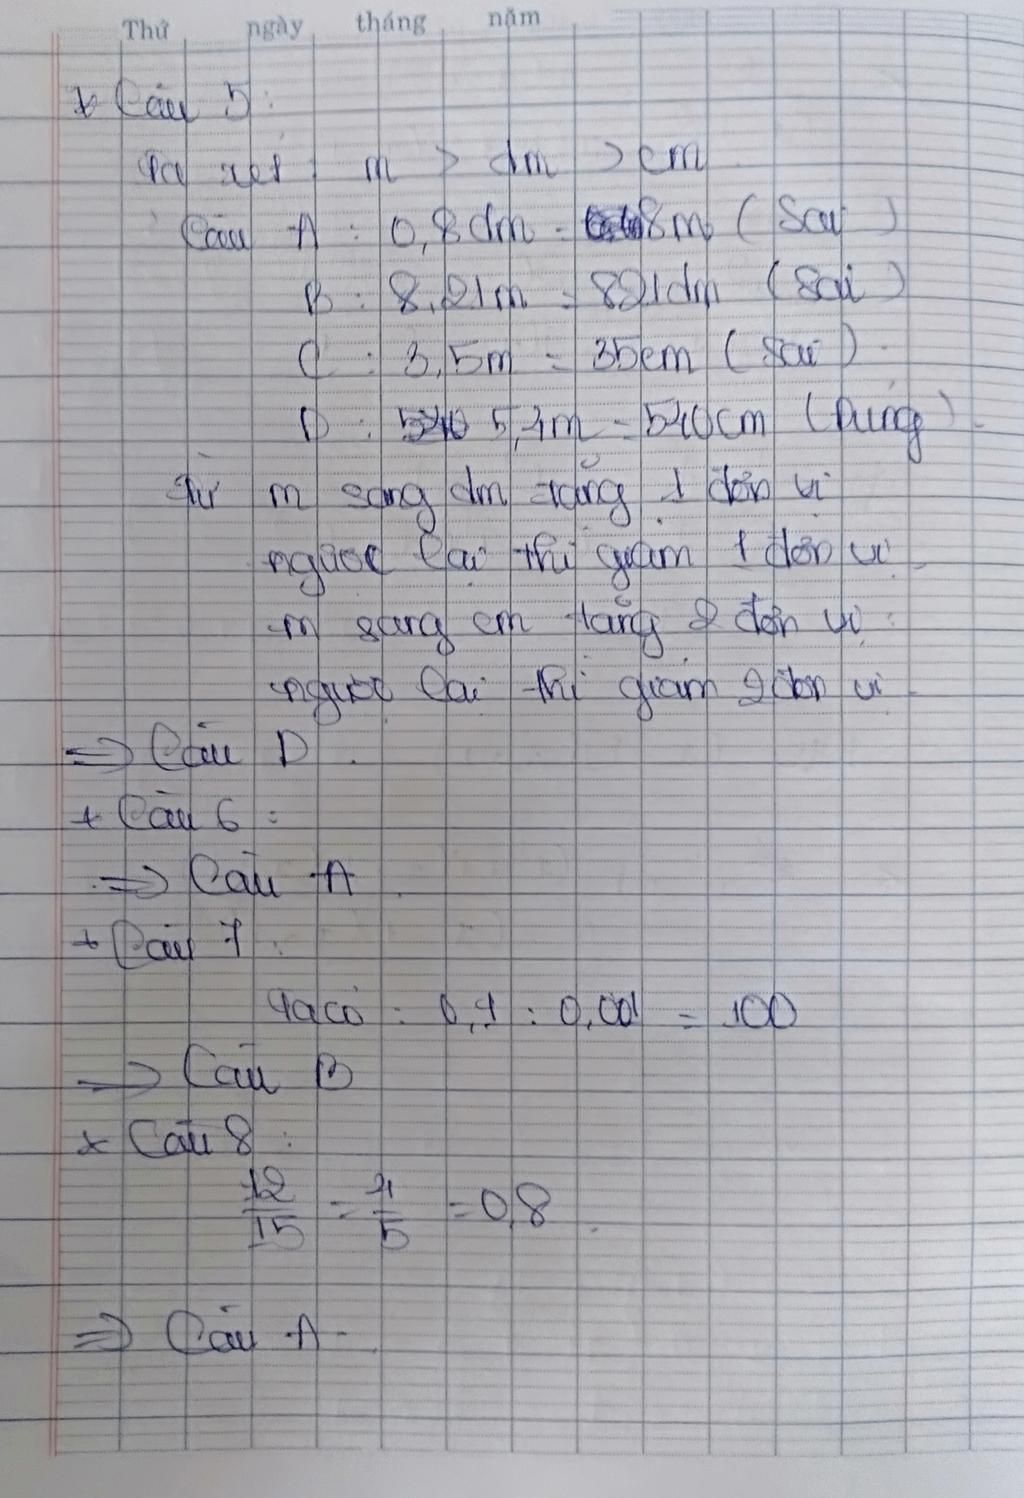 Thứ ngày tháng năm
* Câu 5:
Ta xét : m > dm > cm
Câu A : 0,8dm = 8m (Sai)
B : 8,21m = 821dm (Sai)
C : 3,5m = 35cm (Sai)
D : 5,4m = 540cm (Đúng)
Từ m sang dm tăng 1 đơn vị
ngược lại thì giảm 1 đơn vị
m sang cm tăng 2 đơn vị
ngược lại thì giảm 2 đơn vị
=> Câu D.
+ Câu 6 :
=> Câu A
+ Câu 7 :
Ta có : 0,1 : 0,001 = 100
=> Câu B
* Câu 8 :
12/15 = 4/5 = 0,8
=> Câu A